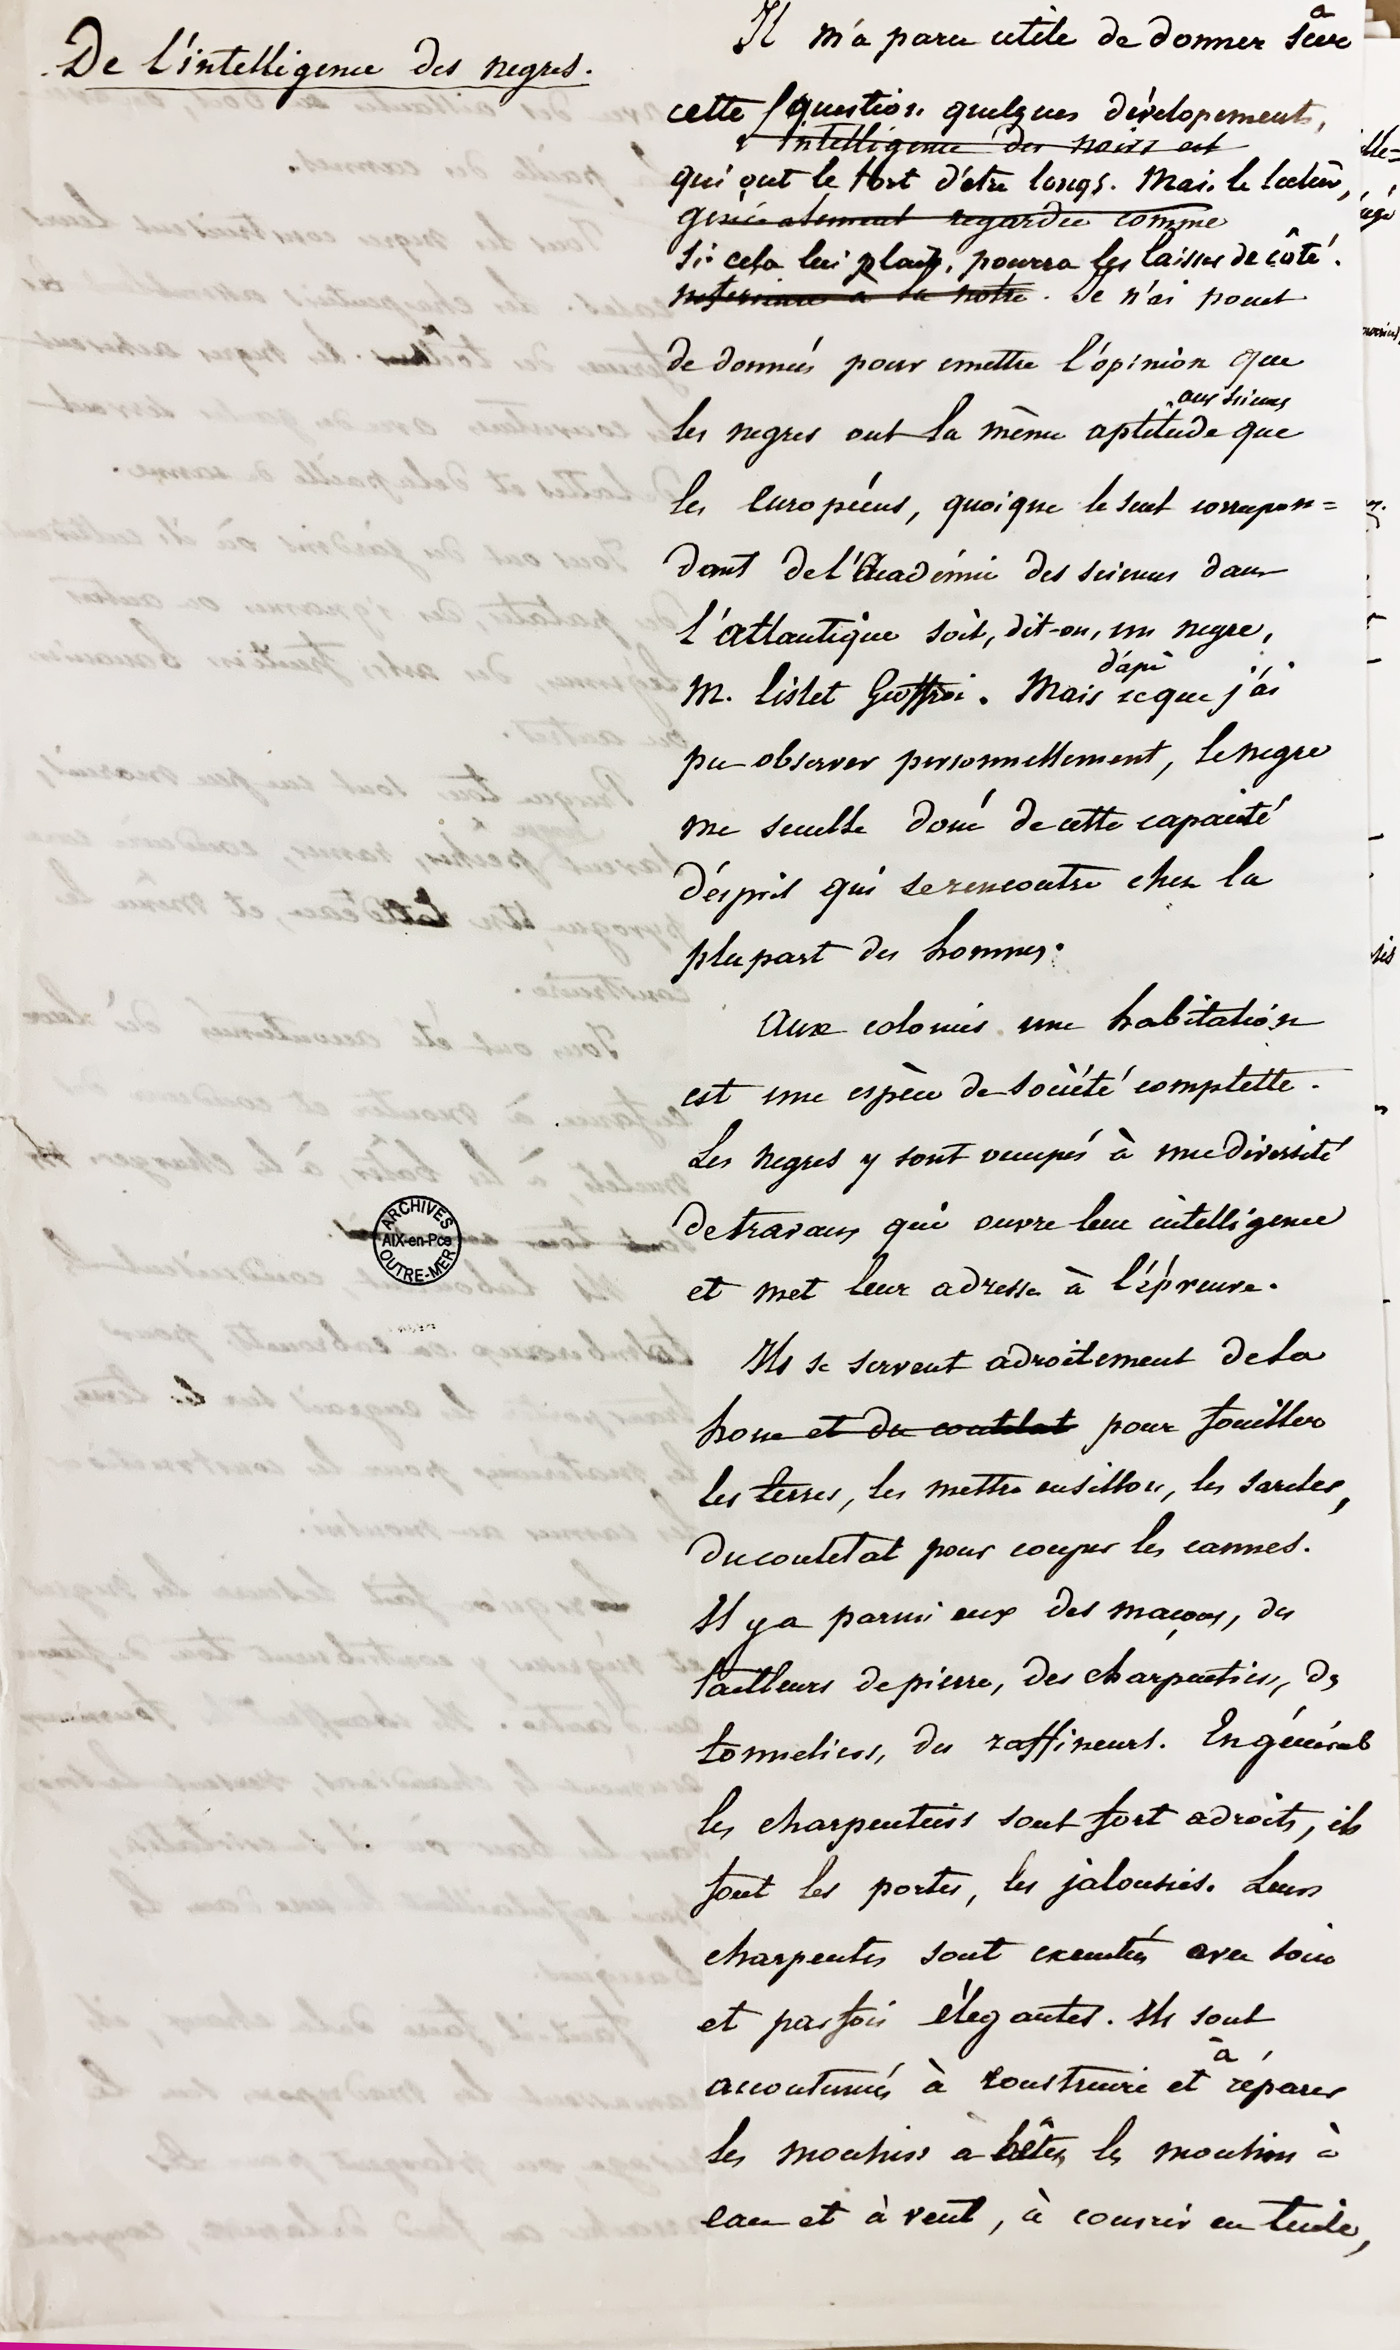 De l'intelligence des negres.
Il m'a paru utile de donner sur
cette question quelques dévelopements,
l'intelligence des noirs est
qui ont le tort d'etre longs. Mais le lecteur,
généralement regardée comme
si cela lui plait, pourra les laisser de côté.
inferieure à la notre. Je n'ai point
de données pour emettre l'opinion que
aux sciences
les negres ont la même aptitude que
les Européens, quoique le seul correspon=
dant de l'Académie des sciences dans
l'atlantique soit, dit-on, un negre,
M. lislet Geoffroi. Mais d'après ce que j'ai
pu observer personnellement, le negre
me semble doué de cette capacité
d'esprit qui se rencontre chez la
plupart des hommes.
Aux colonies une habitation
est une espèce de société complette.
Les negres y sont occupés à une diversité
de travaux qui ouvre leur intelligence
et met leur adresse à l'épreuve.
Ils se servent adroitement de la
houe et du coutelat pour fouiller
les terres, les mettre en sillon, les sarcler,
du coutelat pour couper les cannes.
Il y a parmi eux des maçons, des
tailleurs de pierre, des charpentiers, des
tonneliers, des raffineurs. En général
les charpentiers sont fort adroits, ils
font les portes, les jalousies. Leurs
charpentes sont executées avec soin
et parfois élégantes. Ils sont
accoutumés à construire et à réparer
les moulins à bêtes, les moulins à
eau et à vent, à couvrir en tuile,
ARCHIVES
AIX-en-Pce
OUTRE-MER